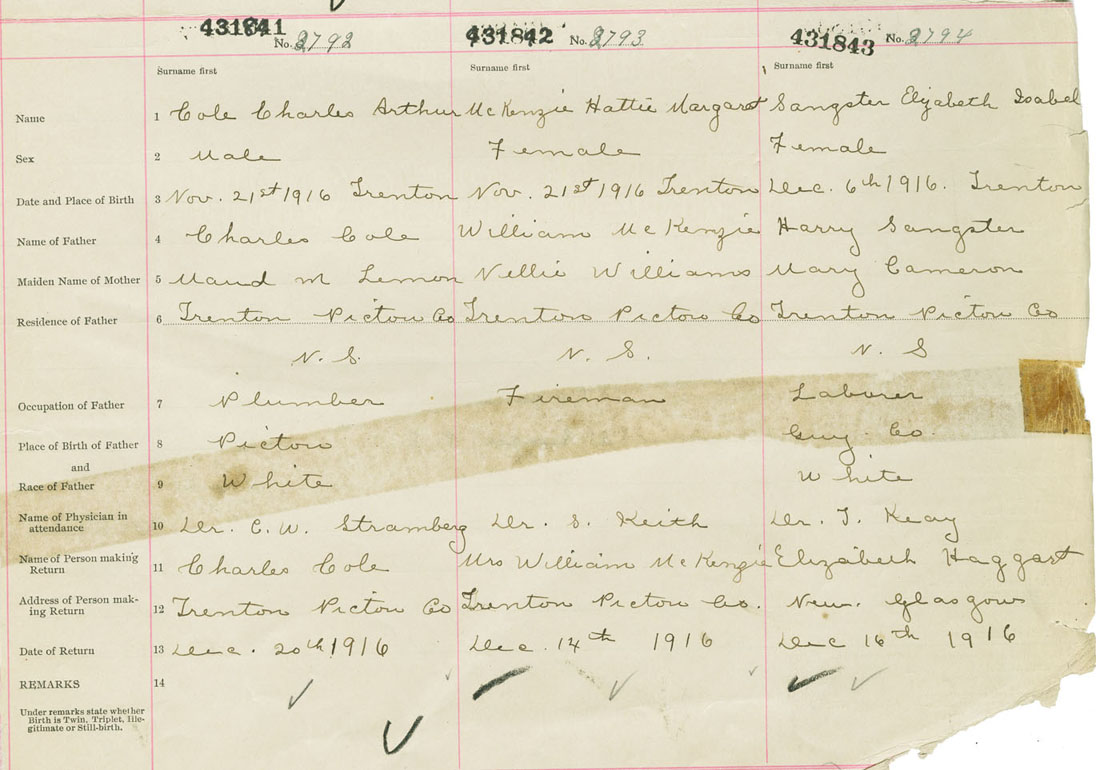 431841 No. 2792 431842 No. 2793 431843 No. 2794
Surname first Surname first Surname first
Name 1 Cole Charles Arthur McKenzie Hattie Margaret Sangster Elizabeth Isabel
Sex 2 Male Female Female
Date and Place of Birth 3 Nov. 21st 1916 Trenton Nov. 21st 1916 Trenton Dec. 6th 1916. Trenton
Name of Father 4 Charles Cole William McKenzie Harry Sangster
Maiden Name of Mother 5 Maud M Lemon Nellie Williams Mary Cameron
Residence of Father 6 Trenton Pictou Co Trenton Pictou Co Trenton Pictou Co
N. S. N. S. N. S
Occupation of Father 7 Plumber Fireman Laborer
Place of Birth of Father 8 Pictou Guy. Co.
and
Race of Father 9 White White
Name of Physician in
attendance 10 Dr. C. W. Stramberg Dr. S. Keith Dr. T. Keay
Name of Person making
Return 11 Charles Cole Mrs William McKenzie Elizabeth Haggart
Address of Person mak-
ing Return 12 Trenton Pictou Co Trenton Pictou Co. New. Glasgow
Date of Return 13 Dec. 20th 1916 Dec. 14th 1916 Dec 16th 1916
REMARKS 14
Under remarks state whether
Birth is Twin, Triplet, Ille-
gitimate or Still-birth.